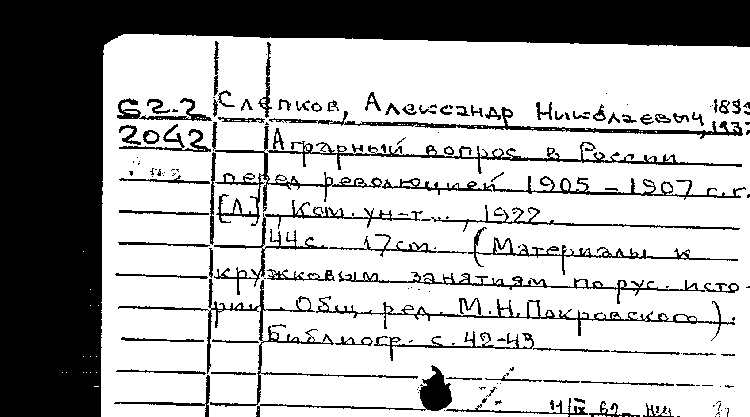 62.2 Слепков, Александр Николаевич,
2042 Аграрный вопрос в России
перед революцией 1905 – 1907 г.г.
[Л.], Ком. ун-т..., 1922.
44 с. 17 см. (Материалы к
кружковым занятиям по рус. исто-
рии. Общ. ред. М.Н. Покровского).
Библиогр. с. 42-43